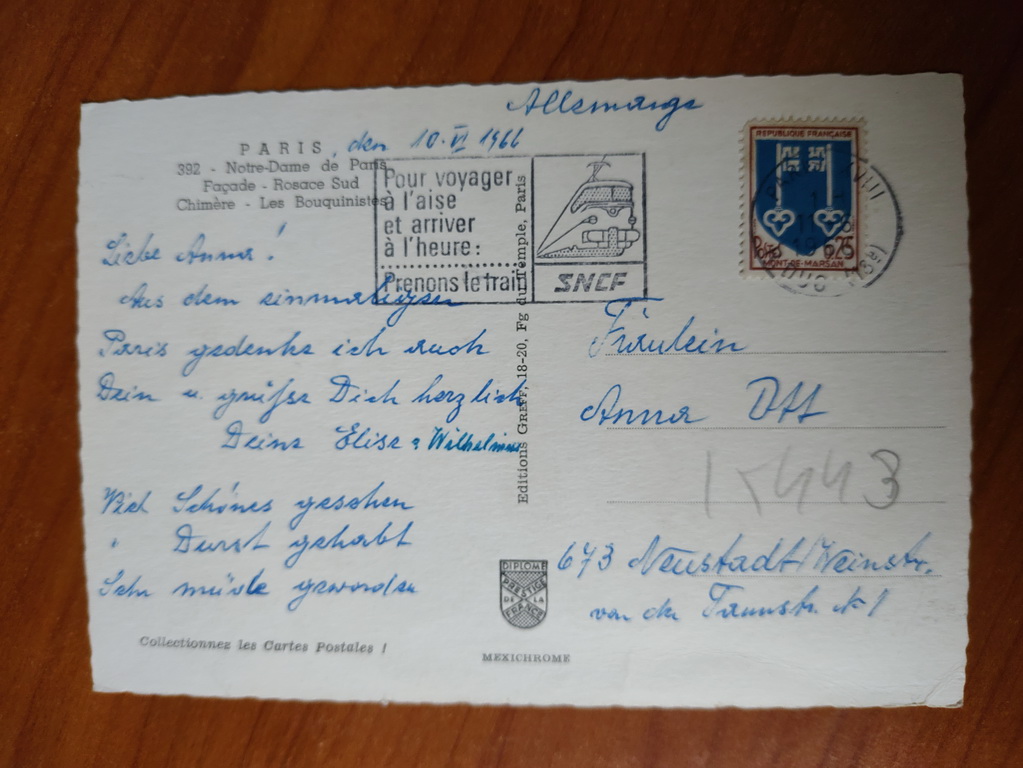 Allemange
PARIS, den 10. VI 1966
392 - Notre-Dame de Paris
Façade - Rosace Sud
Chimère - Les Bouquinistes
Pour voyager
à l'aise
et arriver
à l'heure:
Prenons le train
SNCF
REPUBLIQUE FRANÇAISE
Postes 0,25
MONT-DE-MARSAN
Liebe Anna!
Aus dem einmaligen
Paris gedenke ich auch
Dein u. grüße Dich herzlich
Deine Elise
Wilhelmine
Viel Schönes gesehen
" Durst gehabt
Sehr müde geworden
Collectionnez les Cartes Postales !
Editions GREFF, 18-20, Fg du Temple, Paris
DIPLOME
PRESTIGE
DE LA
FRANCE
MEXICHROME
Fräulein
Anna Ott
15443
673 Neustadt/Weinstr.
von der Tannstr. № 1